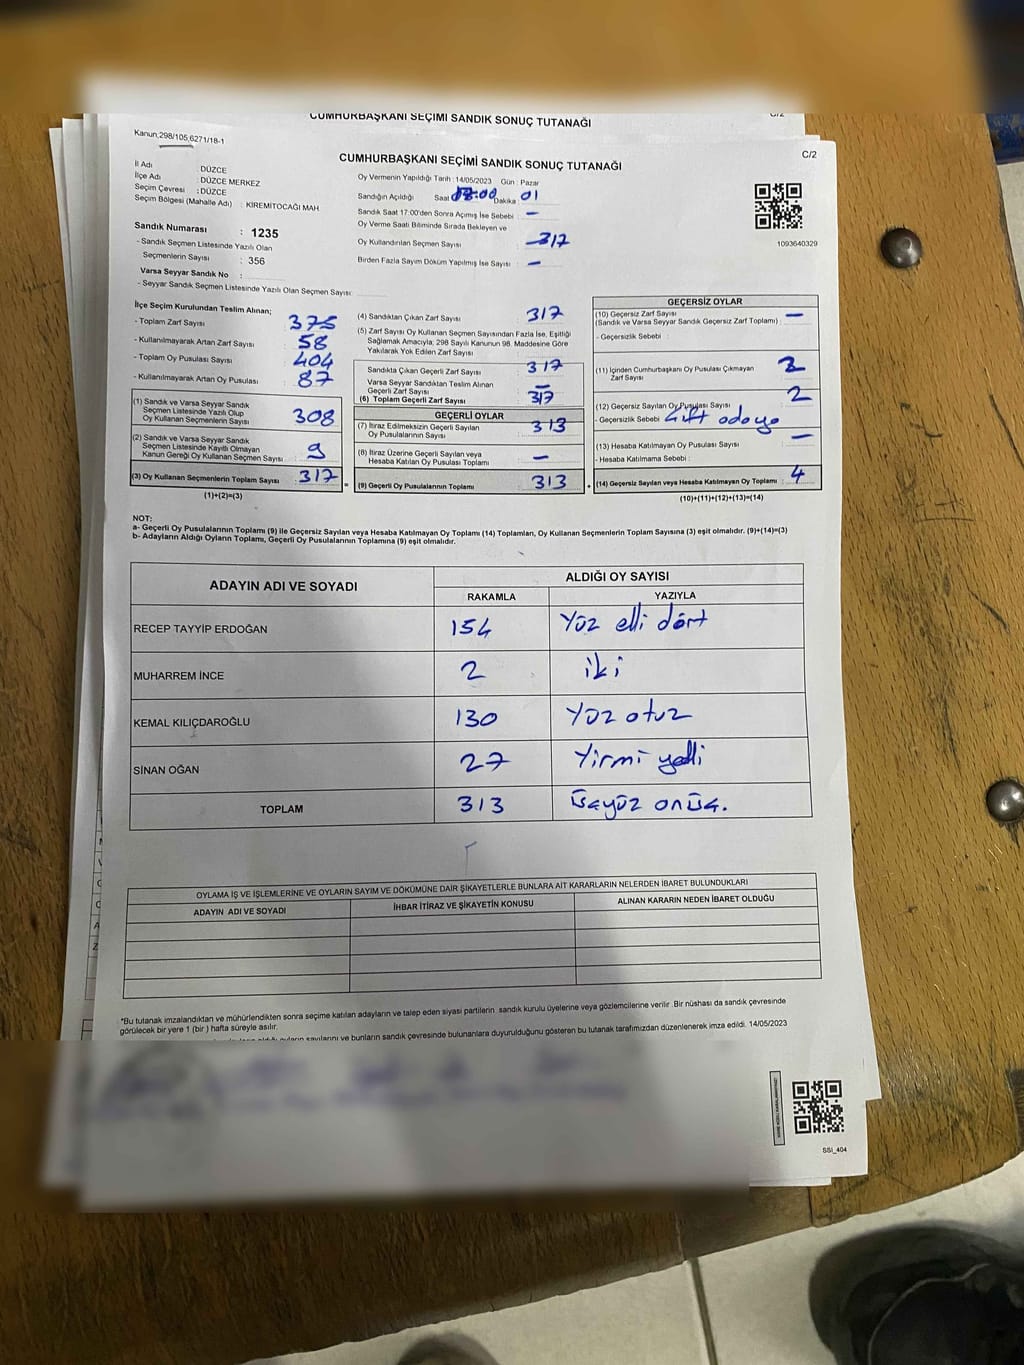 CUMHURBAŞKANI SEÇİMİ SANDIK SONUÇ TUTANAĞI
C/2
Kanun;298/105,6271/18-1
C/2
CUMHURBAŞKANI SEÇİMİ SANDIK SONUÇ TUTANAĞI
İl Adı : DÜZCE
İlçe Adı : DÜZCE MERKEZ
Seçim Çevresi : DÜZCE
Seçim Bölgesi (Mahalle Adı) : KİREMİTOCAĞI MAH.
Sandık Numarası : 1235
- Sandık Seçmen Listesinde Yazılı Olan
Seçmenlerin Sayısı : 356
Varsa Seyyar Sandık No :
- Seyyar Sandık Seçmen Listesinde Yazılı Olan Seçmen Sayısı:
Oy Vermenin Yapıldığı Tarih :14/05/2023 Gün : Pazar
Sandığın Açıldığı Saat 17:00 Dakika 01
Sandık Saat 17:00'den Sonra Açılmış İse Sebebi : –
Oy Verme Saati Bitiminde Sırada Bekleyen ve
Oy Kullandırılan Seçmen Sayısı : 317
Birden Fazla Sayım Döküm Yapılmış İse Sayısı : –
1093640329
İlçe Seçim Kurulundan Teslim Alınan;
- Toplam Zarf Sayısı : 375
- Kullanılmayarak Artan Zarf Sayısı : 58
- Toplam Oy Pusulası Sayısı : 404
- Kullanılmayarak Artan Oy Pusulası : 87
(1) Sandık ve Varsa Seyyar Sandık
Seçmen Listesinde Yazılı Olup
Oy Kullanan Seçmenlerin Sayısı : 308
(2) Sandık ve Varsa Seyyar Sandık
Seçmen Listesinde Kayıtlı Olmayan
Kanun Gereği Oy Kullanan Seçmen Sayısı : 9
(3) Oy Kullanan Seçmenlerin Toplam Sayısı : 317
(1)+(2)=(3)
(4) Sandıktan Çıkan Zarf Sayısı : 317
(5) Zarf Sayısı Oy Kullanan Seçmen Sayısından Fazla İse, Eşitliği
Sağlamak Amacıyla; 298 Sayılı Kanunun 98. Maddesine Göre
Yakılarak Yok Edilen Zarf Sayısı :
Sandıkta Çıkan Geçerli Zarf Sayısı : 317
Varsa Seyyar Sandıktan Teslim Alınan
Geçerli Zarf Sayısı : –
(6) Toplam Geçerli Zarf Sayısı : 317
GEÇERLİ OYLAR
(7) İtiraz Edilmeksizin Geçerli Sayılan
Oy Pusulalarının Sayısı : 313
(8) İtiraz Üzerine Geçerli Sayılan veya
Hesaba Katılan Oy Pusulası Toplamı : –
(9) Geçerli Oy Pusulalarının Toplamı : 313
GEÇERSİZ OYLAR
(10) Geçersiz Zarf Sayısı
(Sandık ve Varsa Seyyar Sandık Geçersiz Zarf Toplamı) : –
- Geçersizlik Sebebi :
(11) İçinden Cumhurbaşkanı Oy Pusulası Çıkmayan
Zarf Sayısı : 2
(12) Geçersiz Sayılan Oy Pusulası Sayısı : 2
- Geçersizlik Sebebi
(13) Hesaba Katılmayan Oy Pusulası Sayısı : –
- Hesaba Katılmama Sebebi :
(14) Geçersiz Sayılan veya Hesaba Katılmayan Oy Toplamı : 4
(10)+(11)+(12)+(13)=(14)
NOT:
a- Geçerli Oy Pusulalarının Toplamı (9) ile Geçersiz Sayılan veya Hesaba Katılmayan Oy Toplamı (14) Toplamları, Oy Kullanan Seçmenlerin Toplam Sayısına (3) eşit olmalıdır. (9)+(14)=(3)
b- Adayların Aldığı Oyların Toplamı, Geçerli Oy Pusulalarının Toplamına (9) eşit olmalıdır.
ADAYIN ADI VE SOYADI
ALDIĞI OY SAYISI
RAKAMLA YAZIYLA
RECEP TAYYİP ERDOĞAN 154 Yüz elli dört
MUHARREM İNCE 2 iki
KEMAL KILIÇDAROĞLU 130 Yüz otuz
SİNAN OĞAN 27 Yirmi yedi
TOPLAM 313 üçyüz onüç.
OYLAMA İŞ VE İŞLEMLERİNE VE OYLARIN SAYIM VE DÖKÜMÜNE DAİR ŞİKAYETLERLE BUNLARA AİT KARARLARIN NELERDEN İBARET BULUNDUKLARI
ADAYIN ADI VE SOYADI İHBAR İTİRAZ VE ŞİKAYETİN KONUSU ALINAN KARARIN NEDEN İBARET OLDUĞU
*Bu tutanak imzalandıktan ve mühürlendikten sonra seçime katılan adayların ve talep eden siyasi partilerin sandık kurulu üyelerine veya gözlemcilerine verilir .Bir nüshası da sandık çevresinde
görülecek bir yere 1 (bir ) hafta süreyle asılır.
oyların sayılarını ve bunların sandık çevresinde bulunanlara duyurulduğunu gösteren bu tutanak tarafımızdan düzenlenerek imza edildi. 14/05/2023
SSI_404